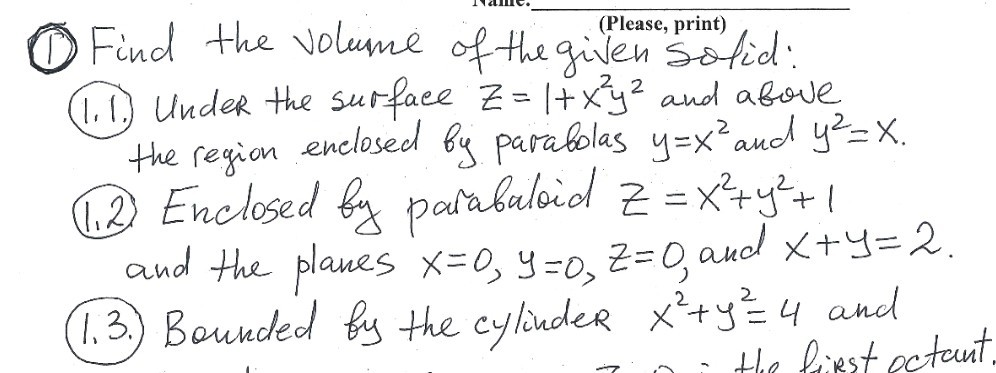 Name:
(Please, print)
① Find the volume of the given solid:
1.1. Under the surface z = 1 + x²y² and above
the region enclosed by parabolas y=x² and y²=x.
1.2 Enclosed by parabaloid z = x²+y²+1
and the planes x=0, y=0, z=0, and x+y=2.
1.3. Bounded by the cylinder x²+y²=4 and
the first octant.